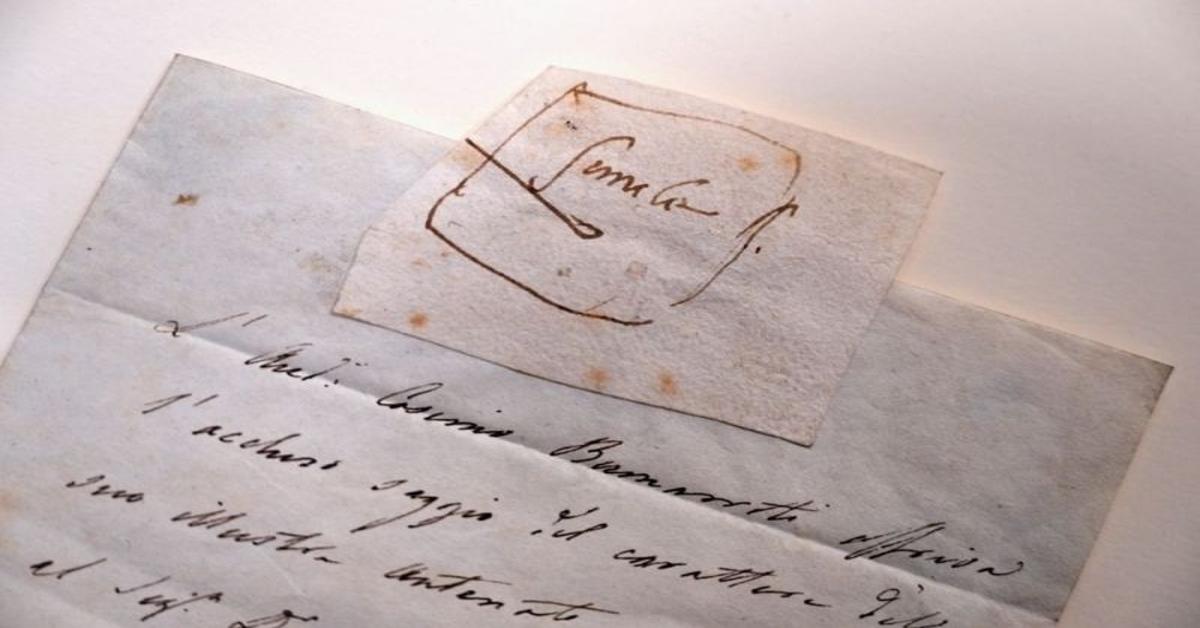 L'Avv.^to Cosimo Buonarroti offriva
l'accluso saggio del carattere dell
suo illustre antenato
al Sig.^r D